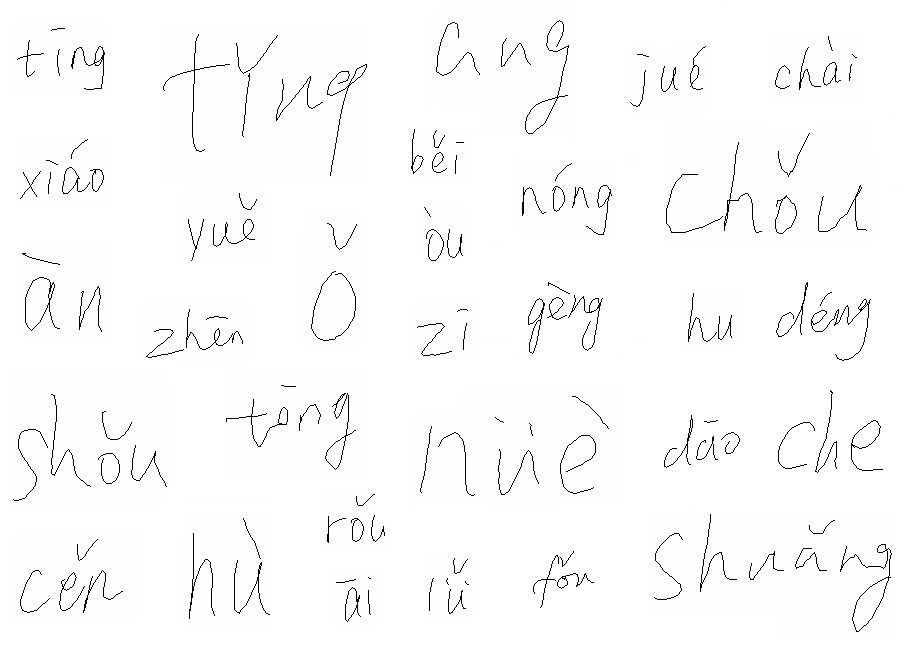 tīng tǐng ang jué chài
xiáo běi nóng chǒu
yuě ǒ òu
àn zhēn zī gèng hu déng
shǒu tōng nüè dāo che
cěn hù rǒu shuǎng
āi lǚ fǒu